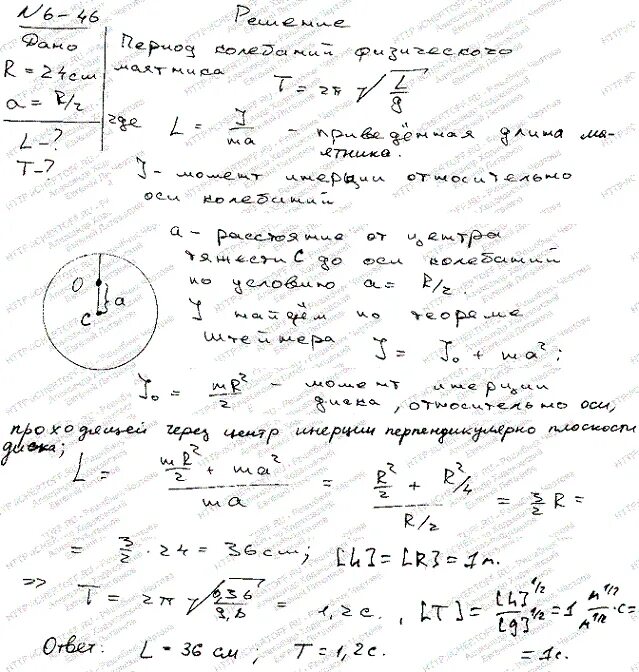 N 6-46 Решение
Дано
R = 24 см
a = R/2
L - ?
T - ?
Период колебаний физического
маятника T = 2π √(L/g)
где L = J/ma - приведённая длина ма-
ятника.
J - момент инерции относительно
оси колебаний
a - расстояние от центра
тяжести C до оси колебаний
по условию a = R/2.
O
a
C
J найдём по теореме
Штейнера J = J₀ + ma²;
J₀ = mR²/2 - момент инерции
диска, относительно оси,
проходящей через центр инерции перпендикулярно плоскости
диска;
L = (mR²/2 + ma²)/ma = (R²/2 + R²/4)/(R/2) = 3/2 R =
= 3/2 · 24 = 36 см; [L] = [R] = 1 м.
=> T = 2π √(0,36/9,8) = 1,2 с. , [T] = [L]^1/2/[g]^1/2 = 1 м^1/2/м^1/2 · с =
= 1 с.
Ответ: L = 36 см; T = 1,2 с.